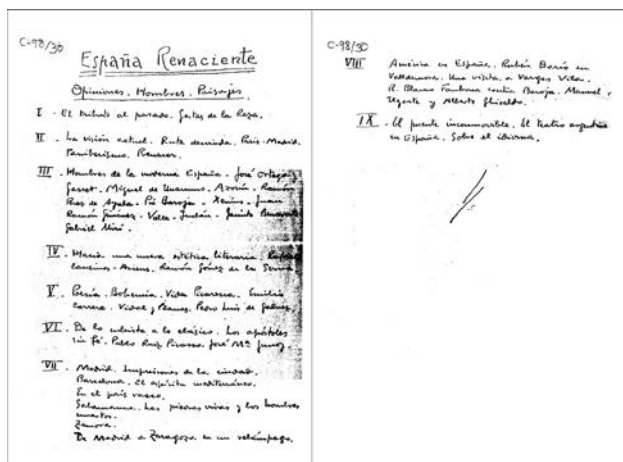 C-98/30
España Renaciente
Opiniones. Hombres. Paisajes
I - El tributo al pasado. Gestas de la Raza.
II - La visión actual. Ruta desviada. Paris-Madrid.
Panibericismo.
III - Hombres de la moderna España - José Ortega y
Gasset. Miguel de Unamuno. Azorín. Ramón
Perez de Ayala. Pío Baroja. Xenius. Juan
Ramón Jiménez. Valle-Inclán. Jacinto Benavente
Gabriel Miró.
IV - Hacia una nueva estética literaria. Rafael
Cansinos-Assens. Ramón Gómez de la Serna
V - Poesía. Bohemia. Vida Picaresca. Emilio
Carrere. Vidal y Planas. Pedro Luis de Galvez.
VI - De lo cubista a lo clásico. Los apóstoles
sin fé. Pablo Ruiz Picasso. José Mª Junoy.
VII - Madrid. Impresiones de la ciudad.
Barcelona. El espíritu mediterráneo.
En el país vasco.
Salamanca. Las piedras vivas y los hombres
muertos.
Zamora.
De Madrid a Zaragoza en un relámpago.
C-98/30
VIII América en España. Rubén Darío en
Valldemosa. Una visita a Vargas Vila.
R. Blanco Fombona contra Baroja. Manuel
Ugarte y Alberto Ghiraldo.
IX - El puente inconmovible. El teatro argentino
en España. Sobre el idioma.